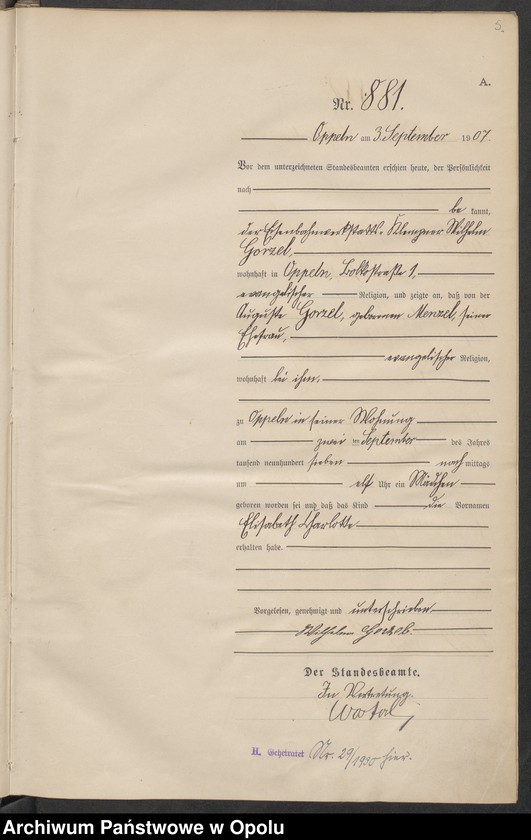 5.
A.
Nr. 881.
Oppeln am 3. September 1907.
Vor dem unterzeichneten Standesbeamten erschien heute, der Persönlichkeit
nach
be kannt,
der Eisenbahnwerkstatts-Klempner Wilhelm
Gorzel,
wohnhaft in Oppeln, Bolkostraße 1,
evangelischer Religion, und zeigte an, daß von der
Auguste Gorzel, geborenen Menzel, seiner
Ehefrau,
evangelischer Religion,
wohnhaft bei ihm,
zu Oppeln in seiner Wohnung
am zwei ten September des Jahres
tausend neunhundert sieben nach mittags
um elf Uhr ein Mädchen
geboren worden sei und daß das Kind die Vornamen
Elisabeth Charlotte
erhalten habe.
Vorgelesen, genehmigt und unterschrieben
Wilhelm Gorzel.
Der Standesbeamte.
In Vertretung.
H. Geheiratet Nr. 29/1930 hier.
Archiwum Państwowe w Opolu